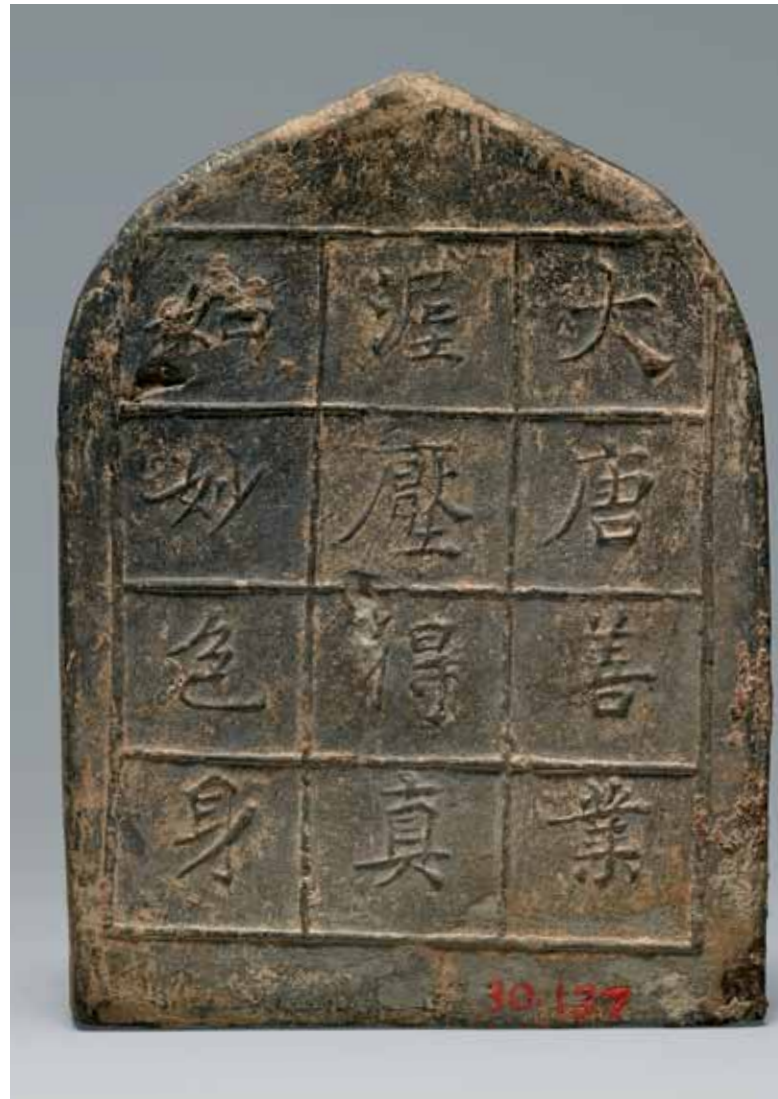 大唐善業
埿壓得真
如妙色身
30.137